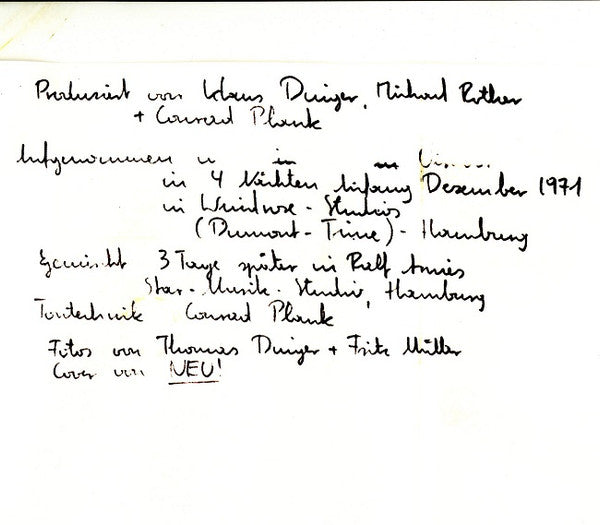 Produziert von Klaus Dinger, Michael Rother
+ Conrad Plank
Aufgenommen
in 4 Nächten Anfang Dezember 1971
in Windrose - Studios
(Dumont - Time) - Hamburg
Gemischt 3 Tage später in Ralf Arnies
Star - Musik - Studio, Hamburg
Tontechnik Conrad Plank
Fotos von Thomas Dinger + Fritz Müller
Cover von NEU!